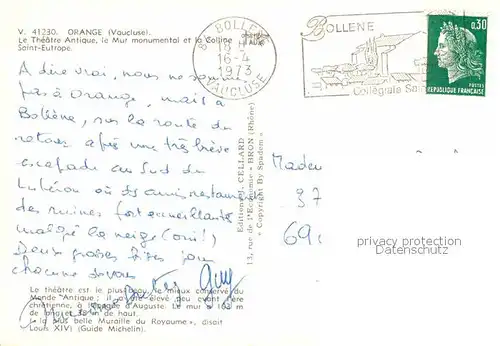 V. 41230. ORANGE (Vaucluse).
Le Théâtre Antique, le Mur monumental et la Colline
Saint-Eutrope.
84 BOLLENE
18 H
16-4
1973
VAUCLUSE
BOLLENE
Collégiale Sai
0,30
POSTES
REPUBLIQUE FRANÇAISE
A dire vrai, nous ne sommes
pas à Orange, mais à
Bollène, sur la route du
retour après une très brève
escapade au Sud du
Lubéron où des amis restaurent
des ruines fort
malgré la neige (oui!)
Deux grosses bises pour
chacune de vous
Guy
Editions J. CELLARD
13, rue de l'Economie - BRON (Rhône)
« Copyright By Spadem »
37
69
privacy protection
Datenschutz
Le théâtre est le plus beau, le mieux conservé du
Monde Antique ; il a été élevé peu avant l'ère
chrétienne, à l'époque d'Auguste. Le mur a 103 m
de long et 38 m de haut.
« la plus belle Muraille du Royaume », disait
Louis XIV) (Guide Michelin).